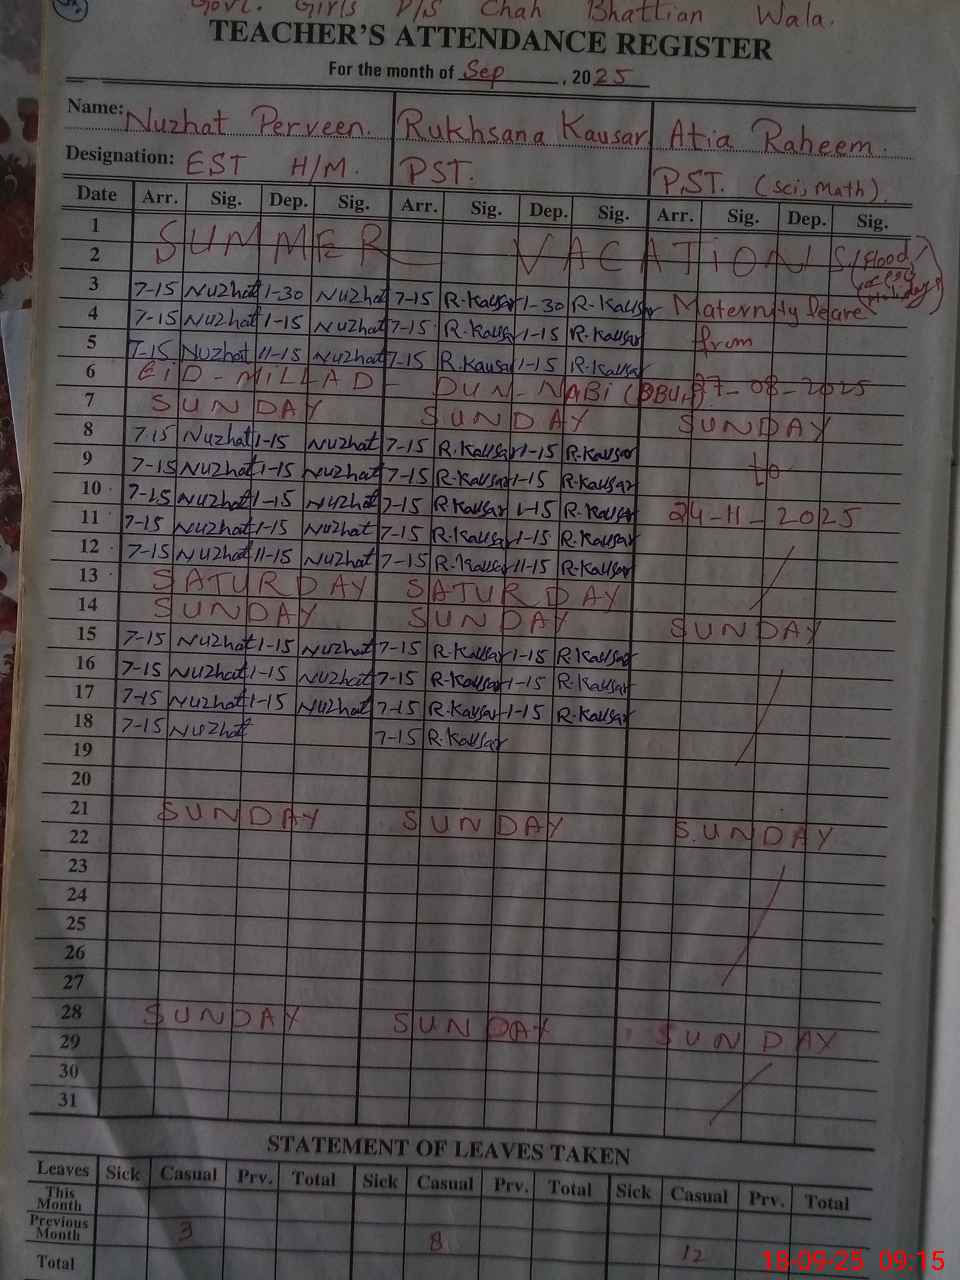 Govt. Girls P/S Chah Bhattian Wala.
TEACHER'S ATTENDANCE REGISTER
For the month of Sep, 2025
Name: Nuzhat Perveen. Rukhsana Kausar Atia Raheem.
Designation: EST H/M. PST. P.ST. (sci, math).
Date Arr. Sig. Dep. Sig. Arr. Sig. Dep. Sig. Arr. Sig. Dep. Sig.
1
2 SUMMER VACATIONS (Flood Holidays)
3 7-15 Nuzhat 1-30 Nuzhat 7-15 R.Kausar 1-30 R.Kausar Maternity leave
4 7-15 Nuzhat 1-15 Nuzhat 7-15 R.Kausar 1-15 R.Kausar from
5 7-15 Nuzhat 11-15 Nuzhat 7-15 R.Kausar 1-15 R.Kausar
6 EID-MILLAD-DUN-NABI 27-08-2025
7 SUNDAY SUNDAY SUNDAY
8 7-15 Nuzhat 1-15 Nuzhat 7-15 R.Kausar 1-15 R.Kausar
9 7-15 Nuzhat 1-15 Nuzhat 7-15 R.Kausar 1-15 R.Kausar to
10 7-15 Nuzhat 1-15 Nuzhat 7-15 R.Kausar 1-15 R.Kausar 24-11-2025
11 7-15 Nuzhat 1-15 Nuzhat 7-15 R.Kausar 1-15 R.Kausar
12 7-15 Nuzhat 11-15 Nuzhat 7-15 R.Kausar 11-15 R.Kausar
13 SATURDAY SATURDAY
14 SUNDAY SUNDAY SUNDAY
15 7-15 Nuzhat 1-15 Nuzhat 7-15 R.Kausar 1-15 R.Kausar
16 7-15 Nuzhat 1-15 Nuzhat 7-15 R.Kausar 1-15 R.Kausar
17 7-15 Nuzhat 1-15 Nuzhat 7-15 R.Kausar 1-15 R.Kausar
18 7-15 Nuzhat 7-15 R.Kausar
19
20
21 SUNDAY SUNDAY SUNDAY
22
23
24
25
26
27
28 SUNDAY SUNDAY SUNDAY
29
30
31
STATEMENT OF LEAVES TAKEN
Leaves Sick Casual Prv. Total Sick Casual Prv. Total Sick Casual Prv. Total
This Month
Previous Month 3 8 12
Total
18-09-25 09:15